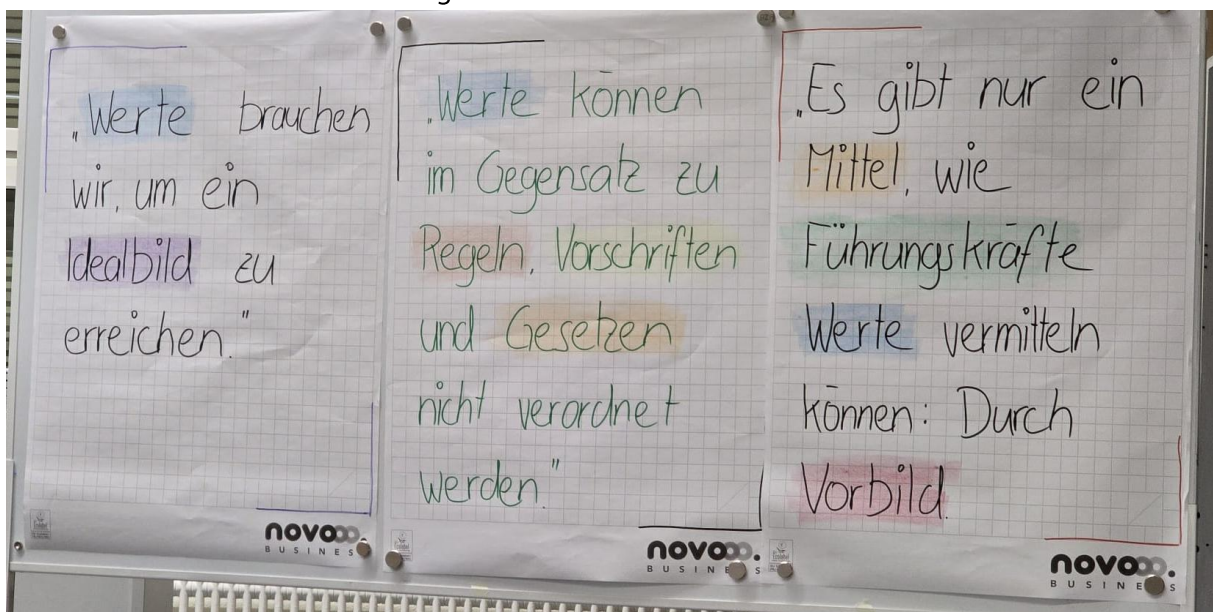 „Werte brauchen
wir, um ein
Idealbild zu
erreichen."
novo
BUSINES
„Werte können
im Gegensatz zu
Regeln, Vorschriften
und Gesetzen
nicht verordnet
werden."
novo
BUSINESS
„Es gibt nur ein
Mittel, wie
Führungskräfte
Werte vermitteln
können: Durch
Vorbild.
novo
BUSINESS